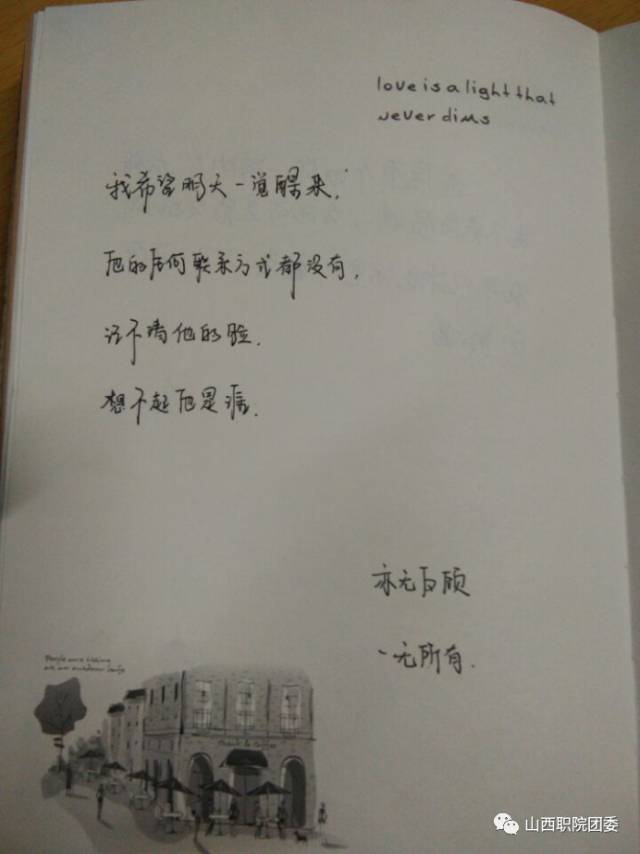 love is a light that
never dims
我希望明天一觉醒来,
他的任何联系方式都没有,
记不清他的脸.
想不起他是谁.
亦无后顾
一无所有.
People were sitting
at an outdoor cafe
山西职院团委